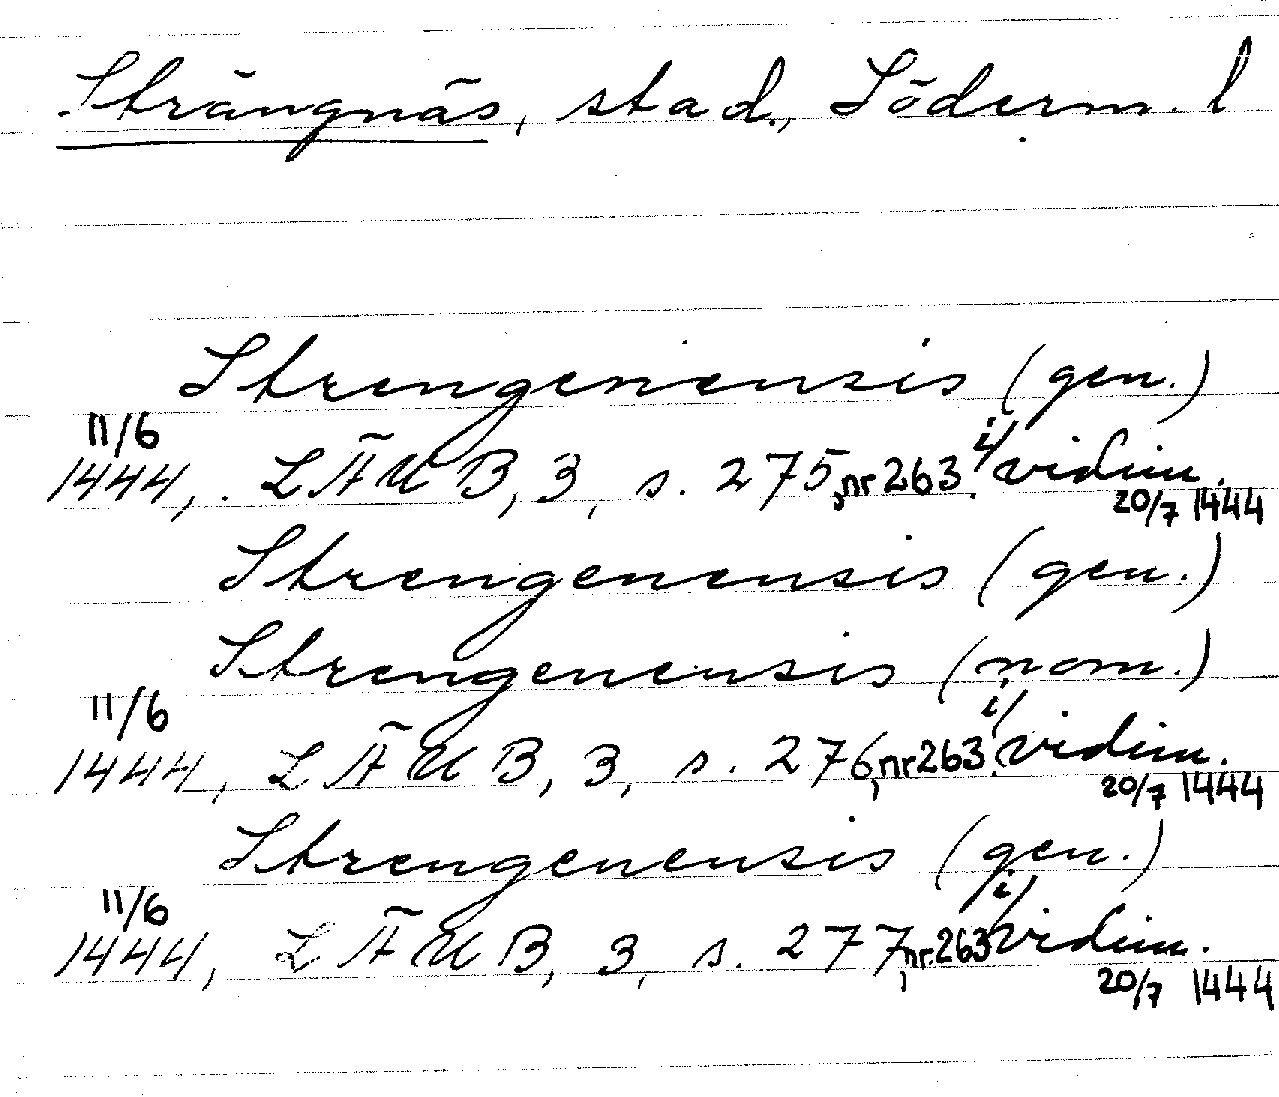 Strängnäs, stad, Söderm. l
Strengenensis (gen.)
11/6
1444, LÄUB, 3, s. 275, nr 263 i/ vidim.
20/7 1444
Strengenensis (gen.)
Strengenensis (nom.)
11/6
1444, LÄUB, 3, s. 276, nr 263 i/ vidim.
20/7 1444
Strengenensis (gen.)
11/6
1444, LÄUB, 3, s. 277, nr. 263 i/ vidim.
20/7 1444